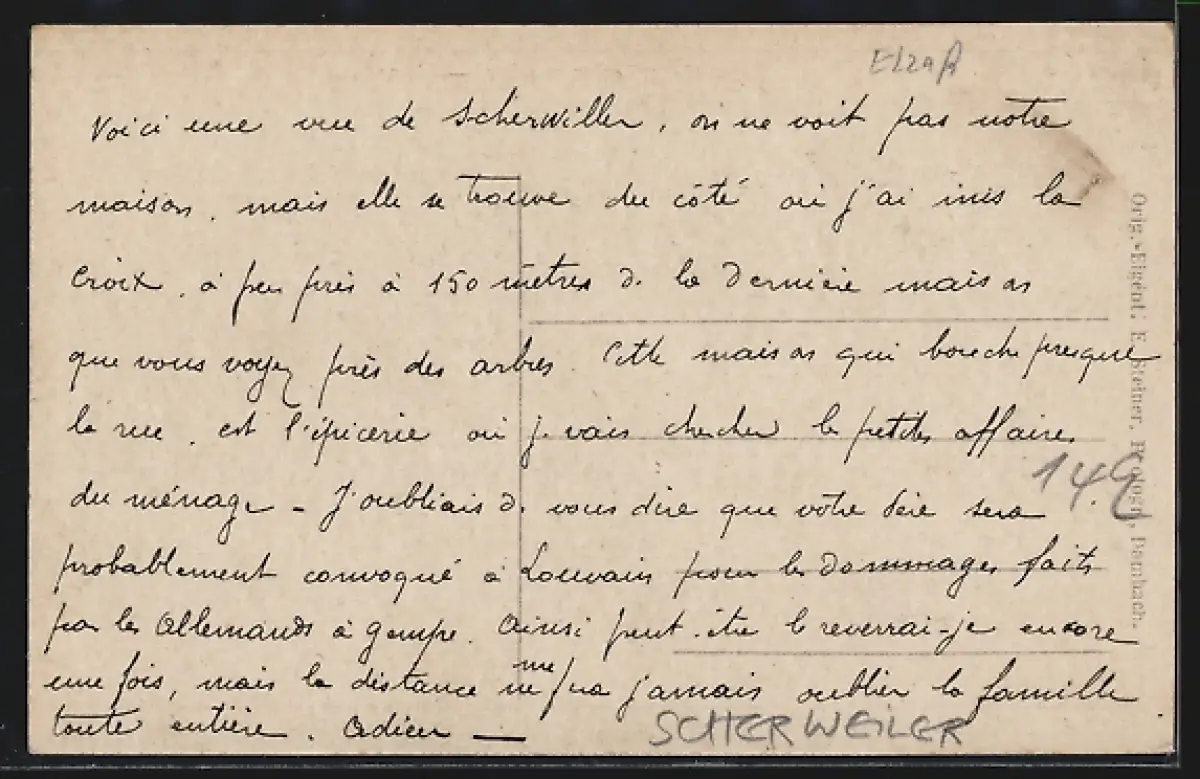 Elzaß
Voici une vue de Scherwiller, on ne voit pas notre
maison, mais elle se trouve du côté où j'ai mis la
croix, à peu près à 150 mètres de la dernière maison
que vous voyez près des arbres. Cette maison qui bouche presque
la rue, est l'épicerie où je vais chercher les petites affaires
du ménage – J'oubliais de vous dire que votre Père sera
probablement convoqué à Louvain pour les dommages faits
par les Allemands à Gempe. Ainsi peut-être le reverrai-je encore
une fois, mais la distance ne me fra jamais oublier la famille
toute entière. Adieu —
SCHERWEILER
Orig.-Eigent: E. Steiner, Dambach.